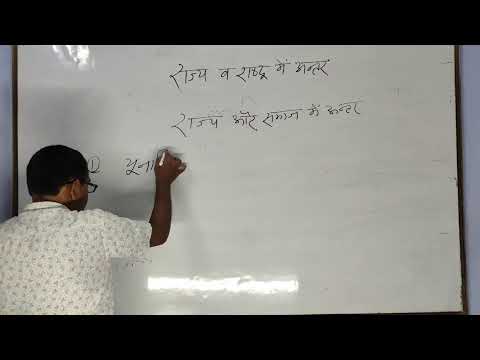 राज्य व राष्ट्र में अन्तर
राज्य और समाज में अन्तर
① यूना